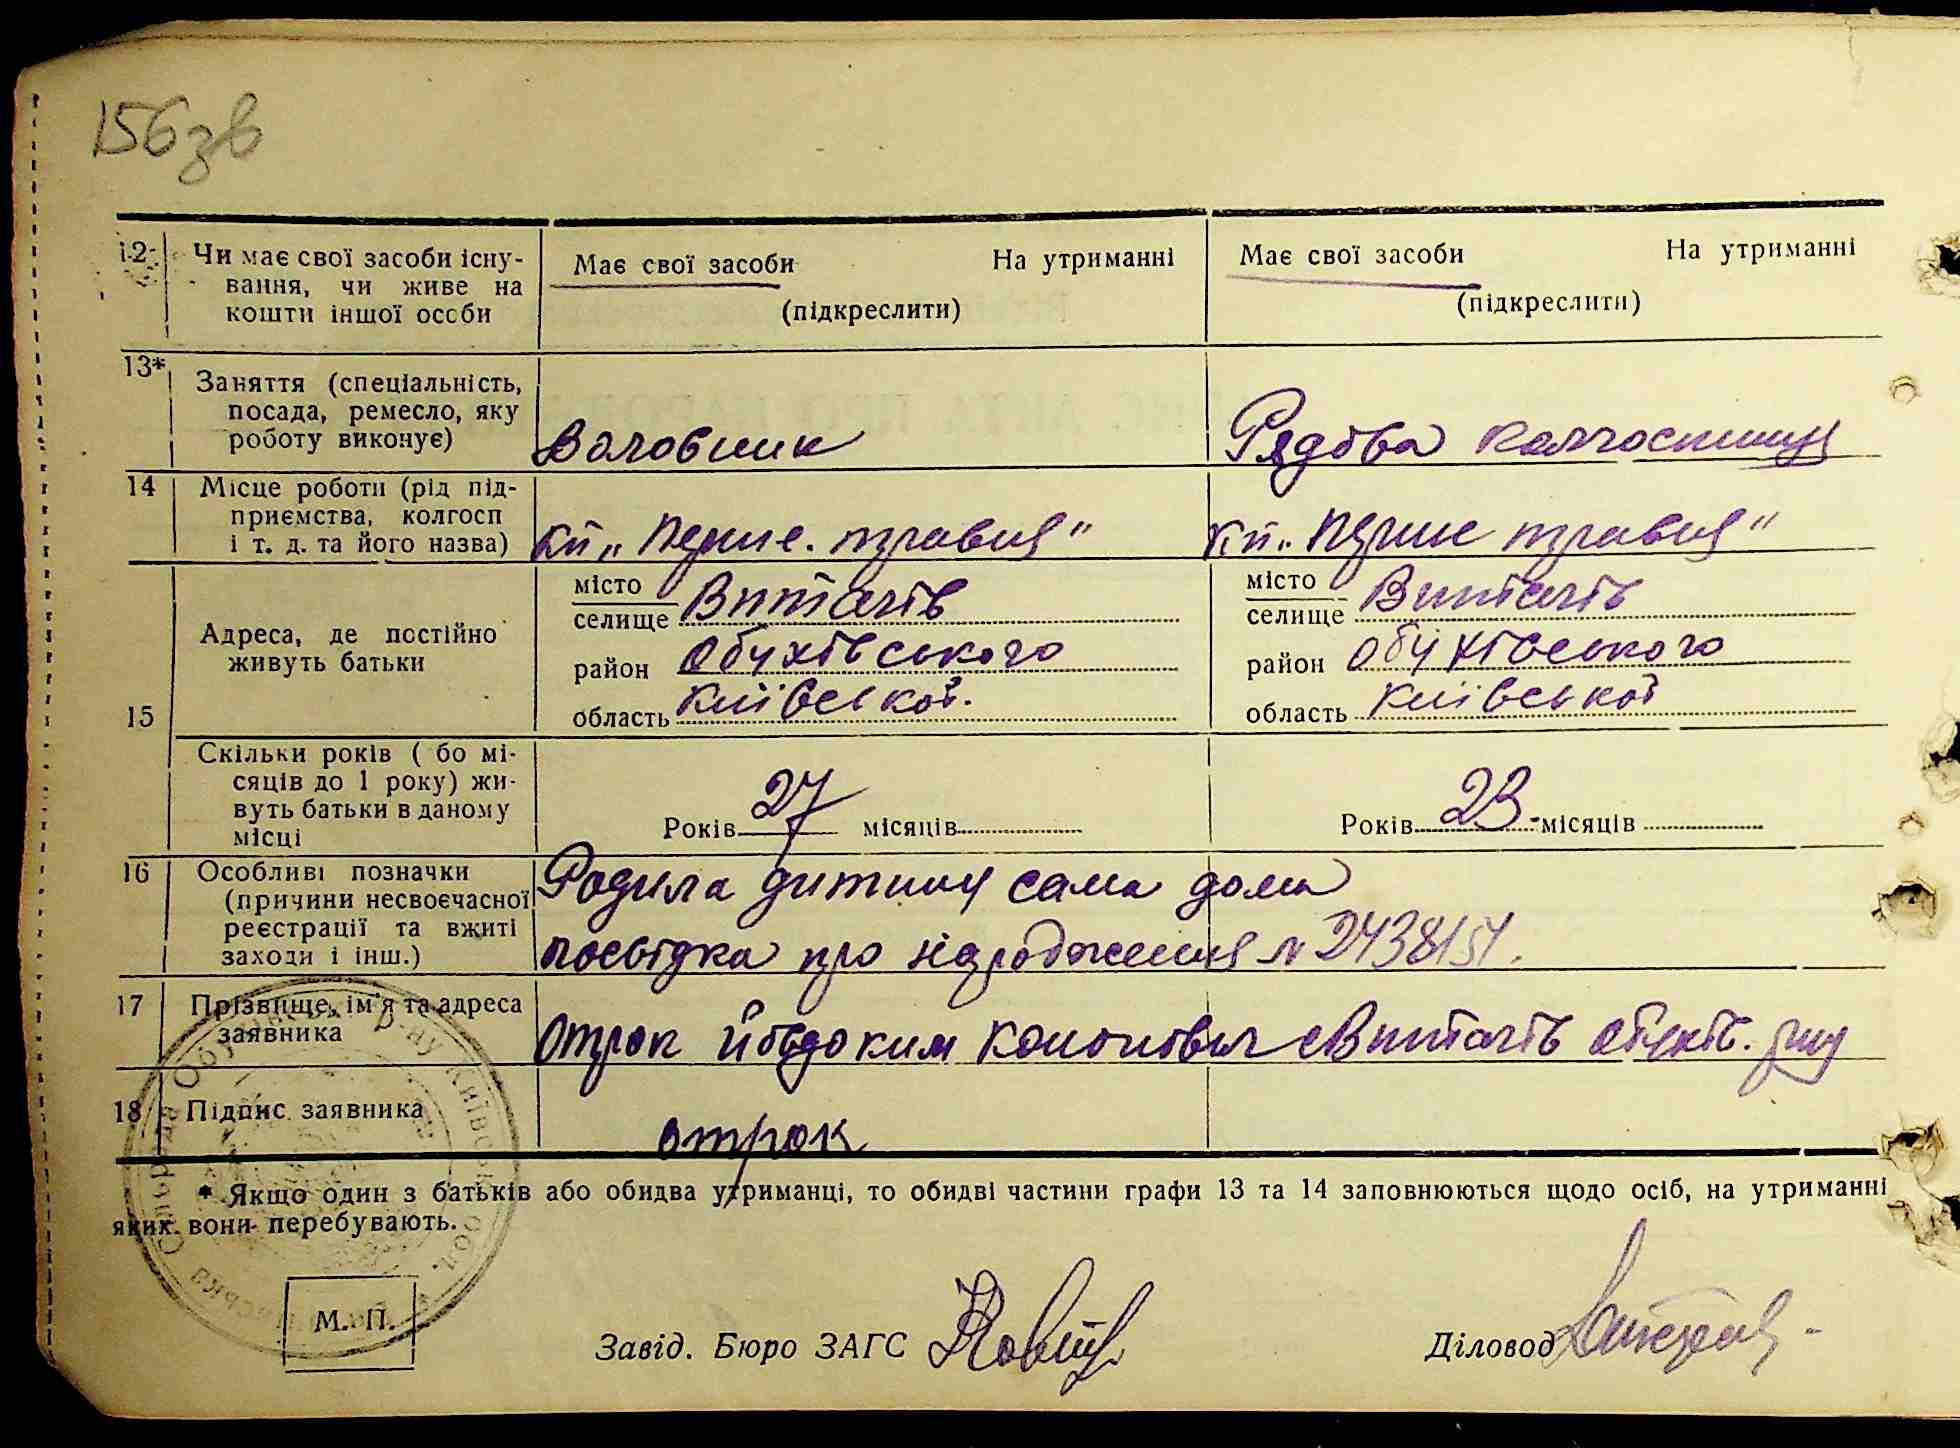 156зв
12 Чи має свої засоби існу-
вання, чи живе на
кошти іншої особи
Має свої засоби На утриманні
(підкреслити)
Має свої засоби На утриманні
(підкреслити)
13* Заняття (спеціальність,
посада, ремесло, яку
роботу виконує)
Воловник
Рядова колгоспниця
14 Місце роботи (рід під-
приємства, колгосп
і т. д. та його назва)
кп „Перше травня"
кп „Перше травня"
15 Адреса, де постійно
живуть батьки
місто
селище Витачів
район Обухівського
область київської.
місто
селище Витачів
район Обухівського
область київської
Скільки років ( бо мі-
сяців до 1 року) жи-
вуть батьки в даному
місці
Років 27 місяців
Років 23 місяців
16 Особливі позначки
(причини несвоєчасної
реєстрації та вжиті
заходи і інш.)
Родила дитину сама дома
посвідка про народження № 2438/51.
17 Прізвище, ім'я та адреса
заявника
Отрок Йовдоким Кононович с Витачів Обухів. р-ну
18 Підпис заявника
отрок
* Якщо один з батьків або обидва утриманці, то обидві частини графи 13 та 14 заповнюються щодо осіб, на утриманні
яких вони перебувають.
М. П.
Завід. Бюро ЗАГС
Діловод